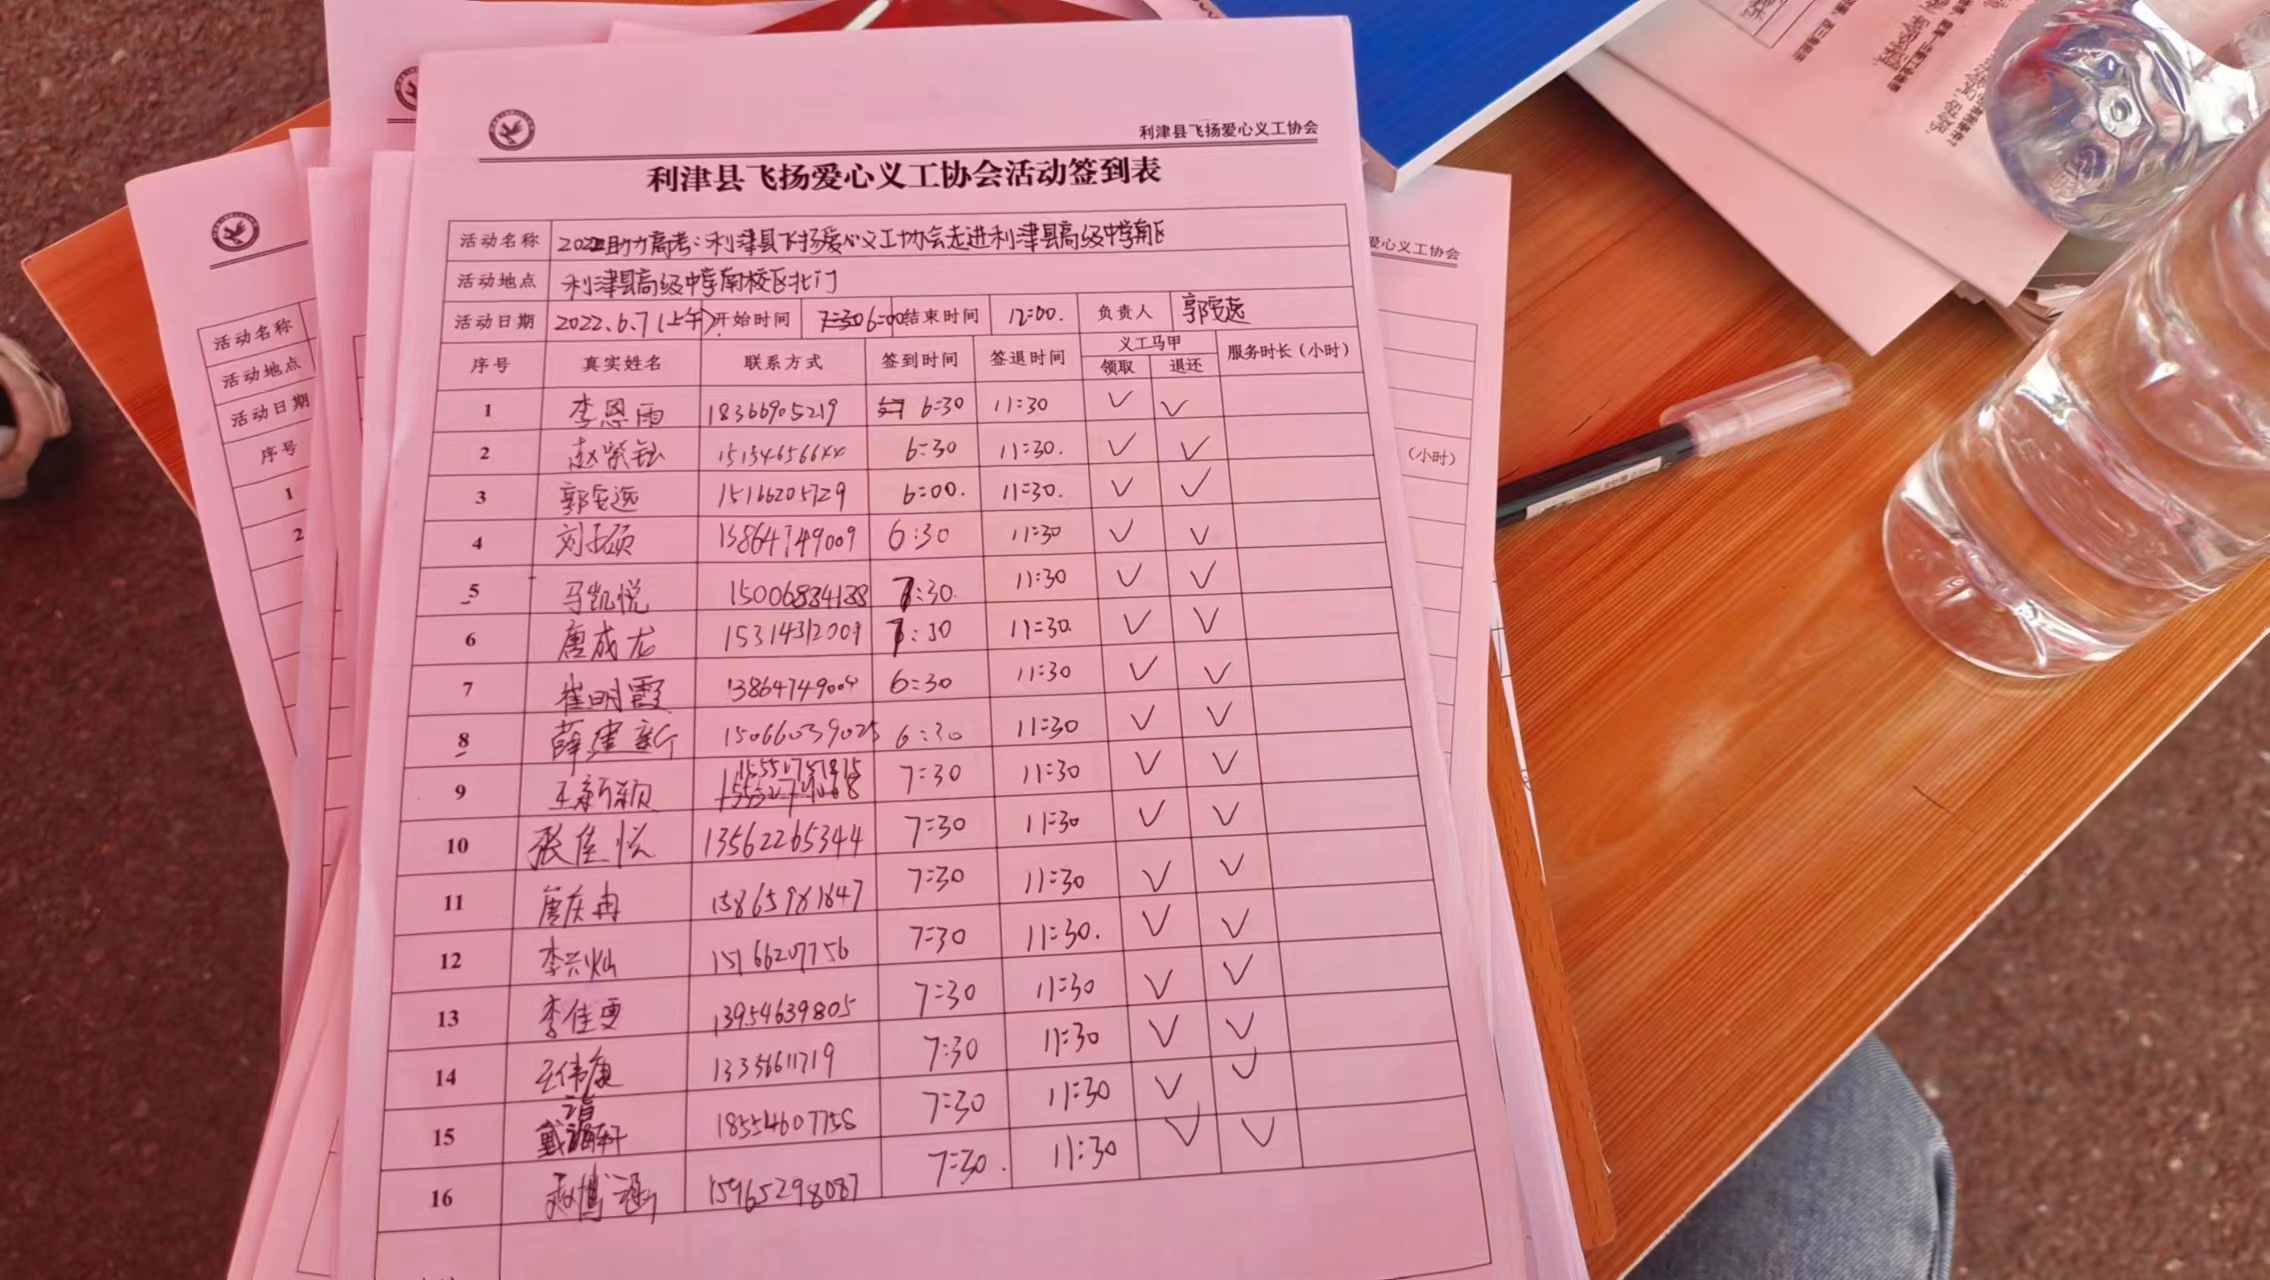 利津县飞扬爱心义工协会
利津县飞扬爱心义工协会活动签到表
活动名称 2022助力高考:利津县飞扬爱心义工协会走进利津县高级中学南区
活动地点 利津县高级中学南校区北门
活动日期 2022.6.7(上午) 开始时间 7:30 6:00 结束时间 12:00. 负责人 郭安逸
序号 真实姓名 联系方式 签到时间 签退时间 义工马甲 服务时长(小时)
领取 退还
1 李恩雨 18366905219 6:30 11:30 ✓ ✓
2 赵紫钰 6:30 11:30. ✓ ✓
3 郭安逸 15166205729 6:00. 11:30. ✓ ✓
4 15864749009 6:30 11:30 ✓ ✓
5 马凯悦 15006834138 7:30. 11:30 ✓ ✓
6 唐成龙 15314312009 7:30 11:30. ✓ ✓
7 崔明霞 13864749009 6:30 11:30 ✓ ✓
8 薛建新 15066039025 6:30 11:30 ✓ ✓
9 王新颖 7:30 11:30 ✓ ✓
10 张佳悦 13562265344 7:30 11:30 ✓ ✓
11 唐庆冉 15865981847 7:30 11:30 ✓ ✓
12 李兴灿 15166207756 7:30 11:30. ✓ ✓
13 李佳雯 13954639805 7:30 11:30 ✓ ✓
14 王伟康 13356611719 7:30 11:30 ✓ ✓
15 18554607758 7:30 11:30 ✓ ✓
16 赵博涵 15965298087 7:30. 11:30 ✓ ✓
活动名称
活动地点
活动日期
序号
1
2
爱心义工协会
(小时)